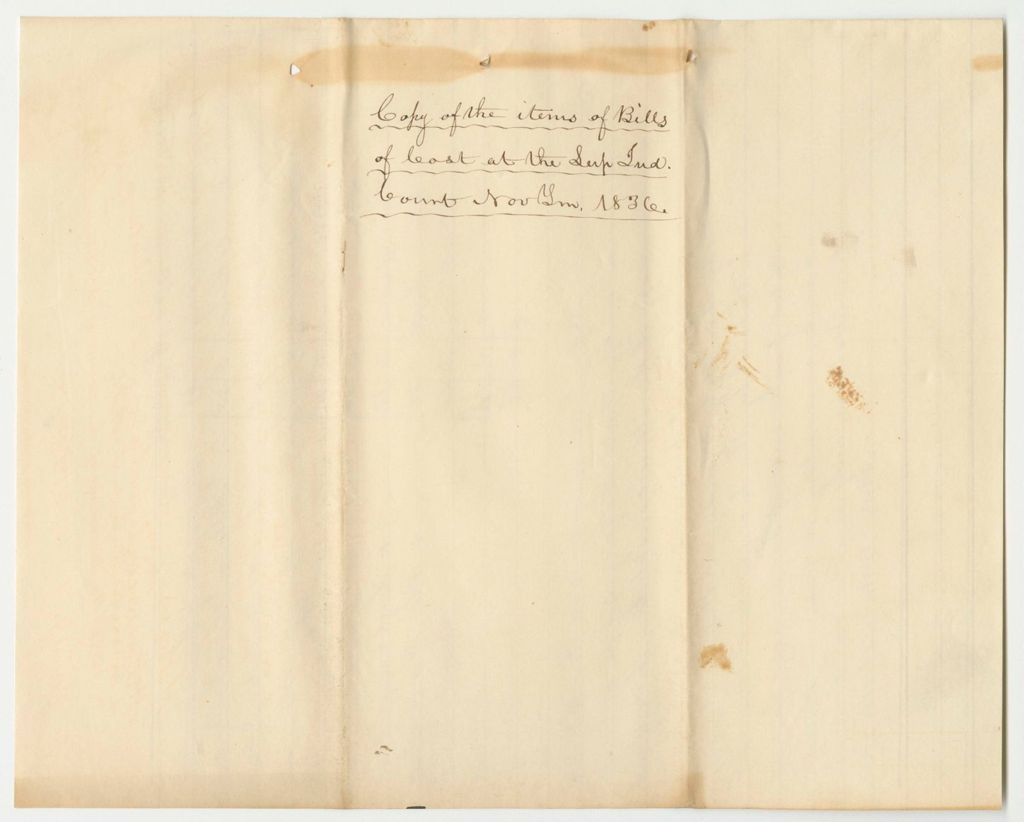 Copy of the items of Bills
of Cost at the Sup Jud.
Court Nov Tm. 1836.